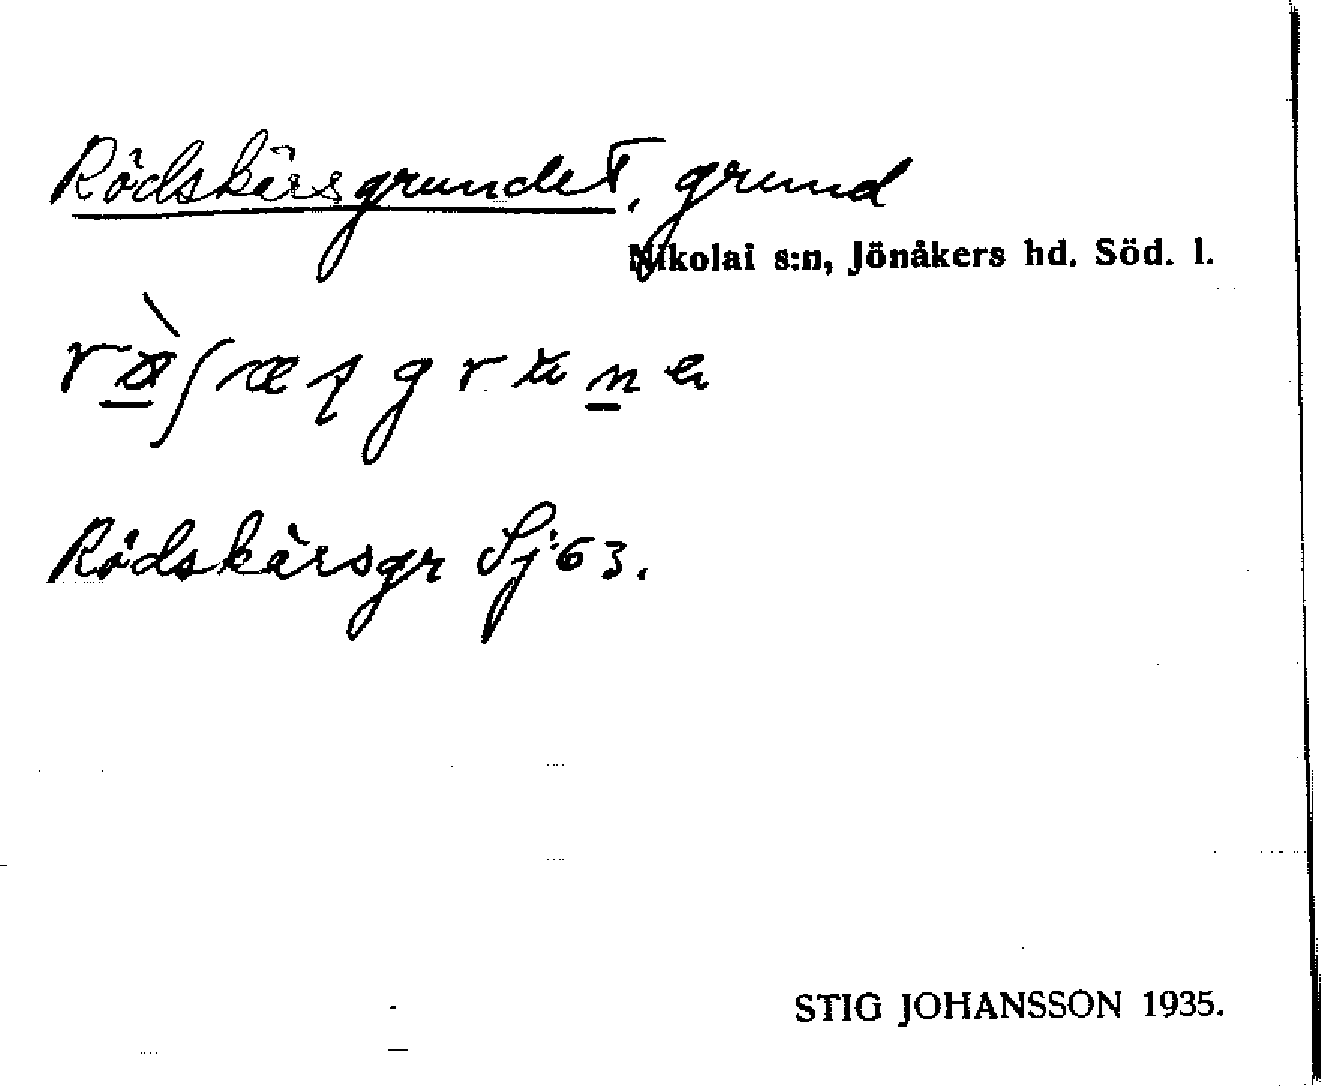 Rödskärsgrundet, grund
Nikolai s:n, Jönåkers hd. Söd. l.
Rödskärsgr Sj:63.
STIG JOHANSSON 1935.